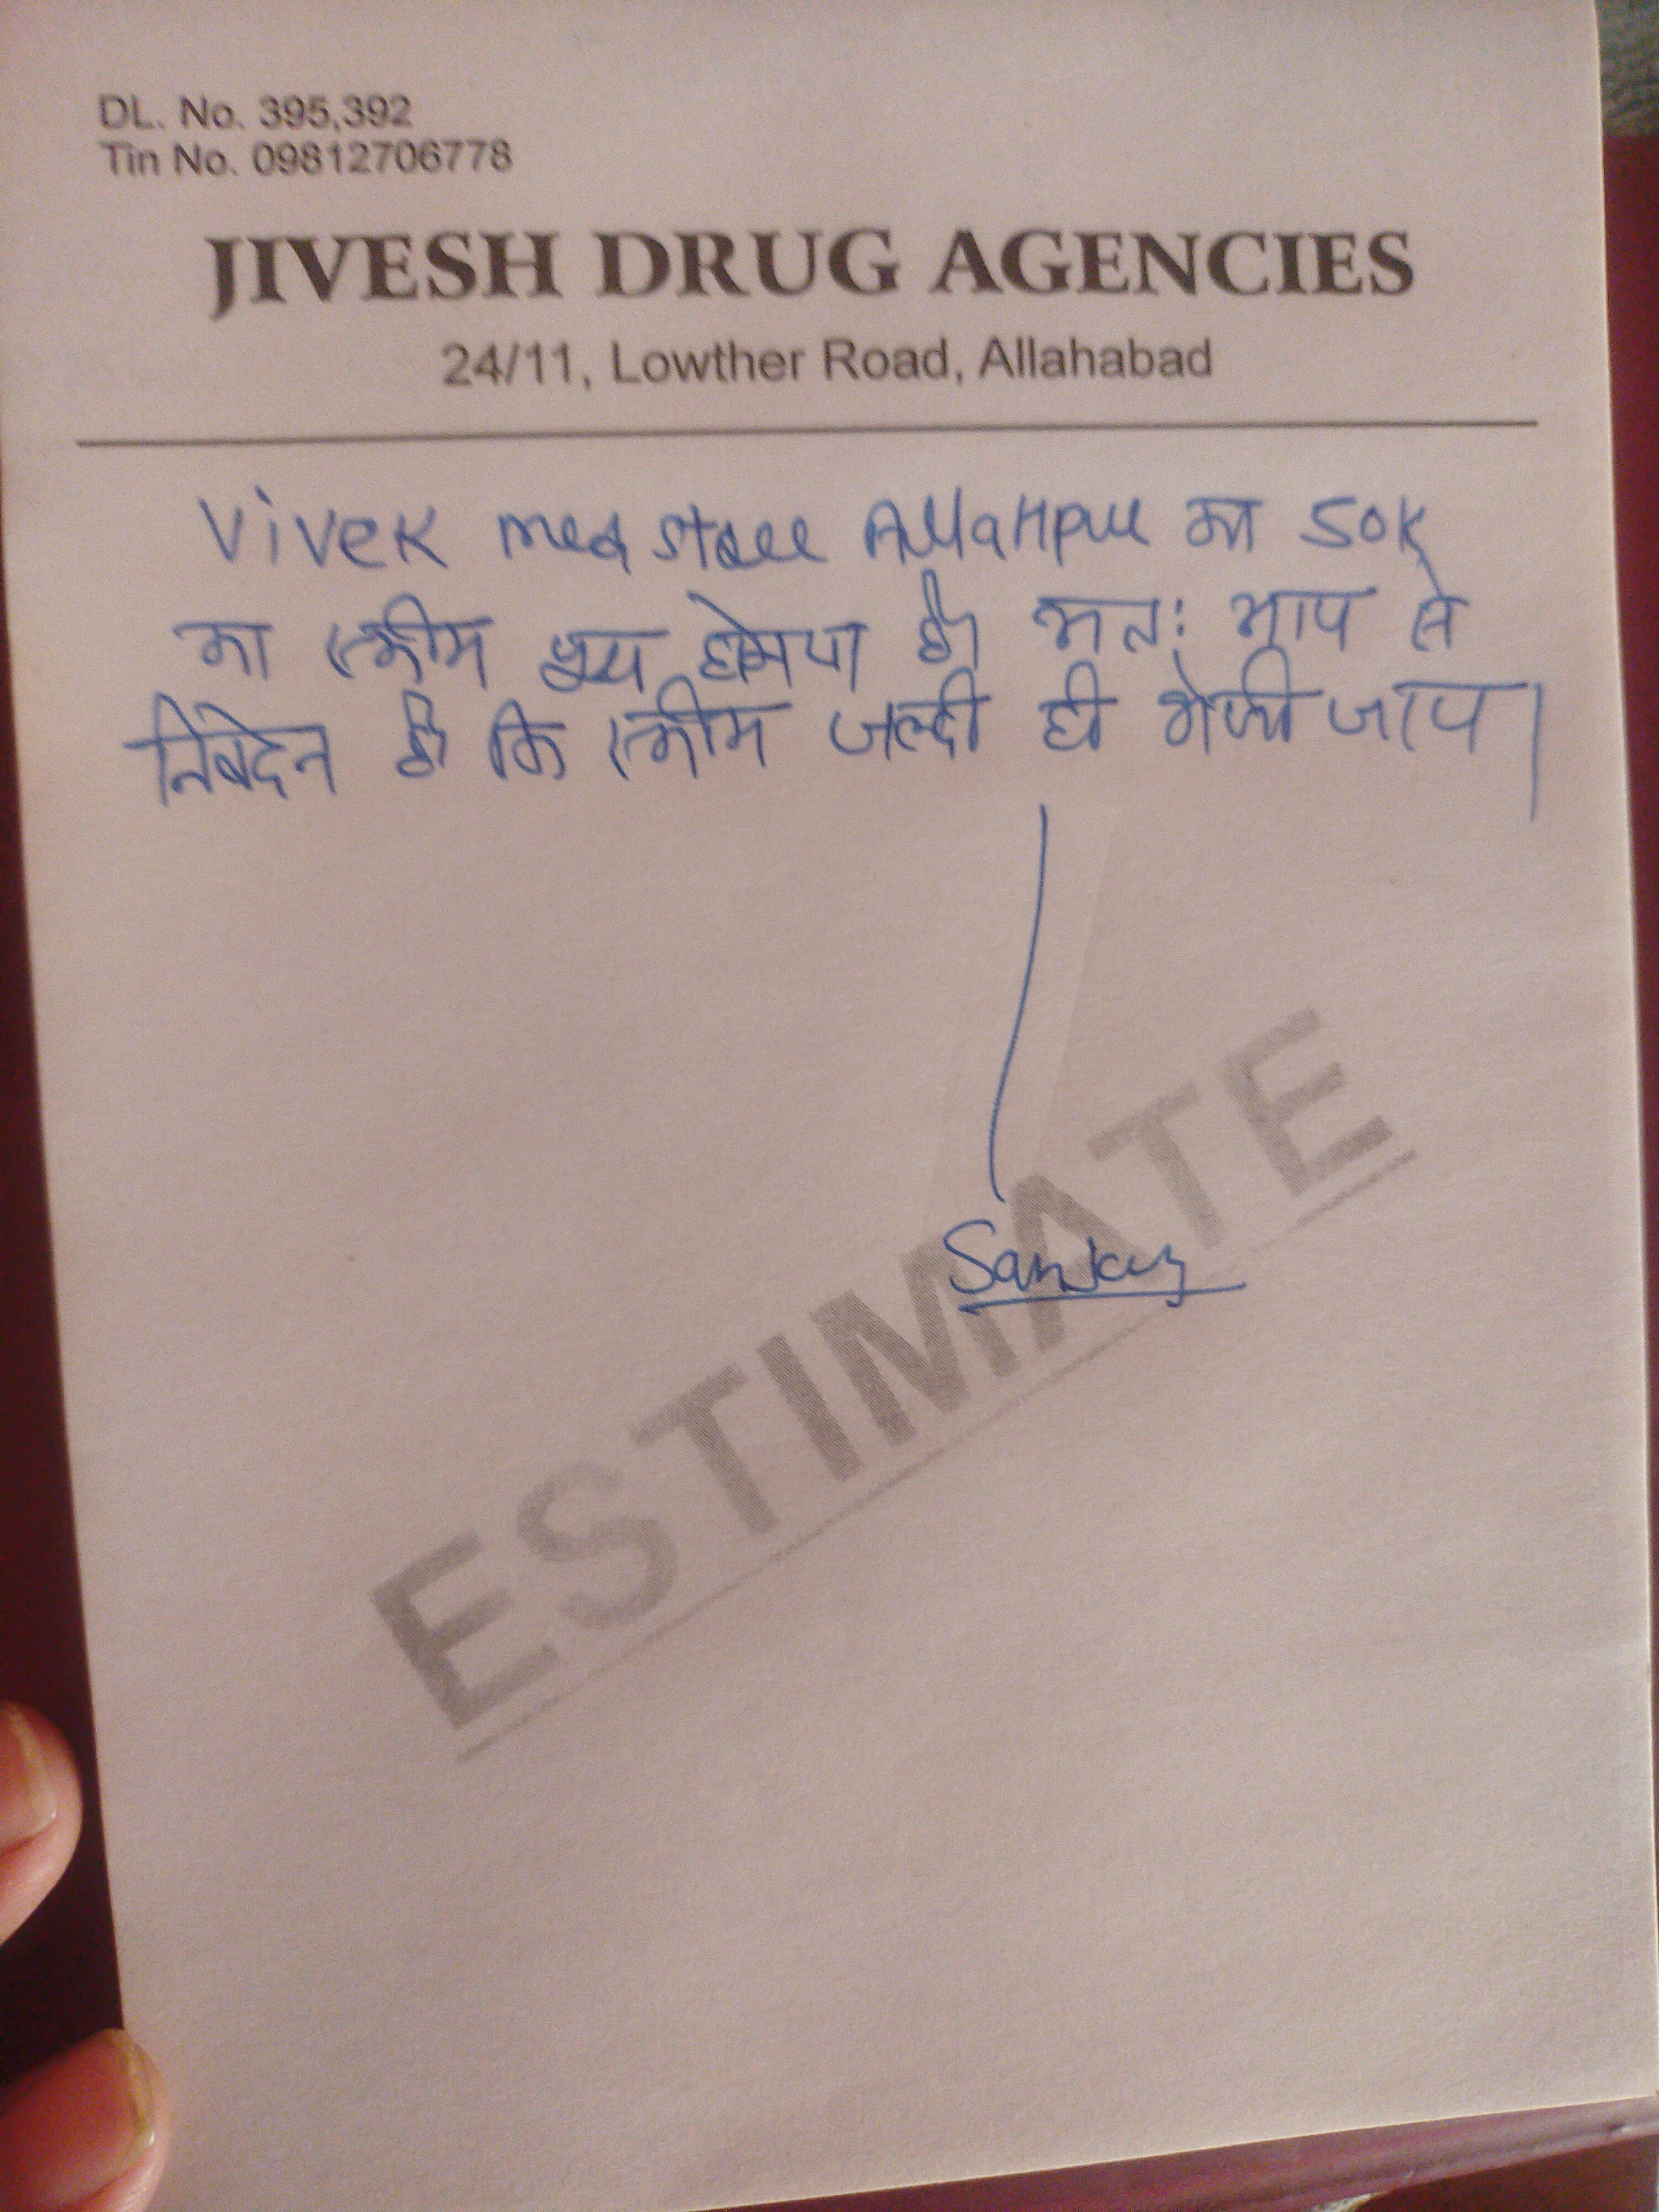 DL. No. 395,392
Tin No. 09812706778
JIVESH DRUG AGENCIES
24/11, Lowther Road, Allahabad
Vivek med store Allahpur का 50K
का स्कीम होगया है। अतः आप से
निवेदन है कि स्कीम जल्दी ही भेजी जाय।
Sanjay
ESTIMATE